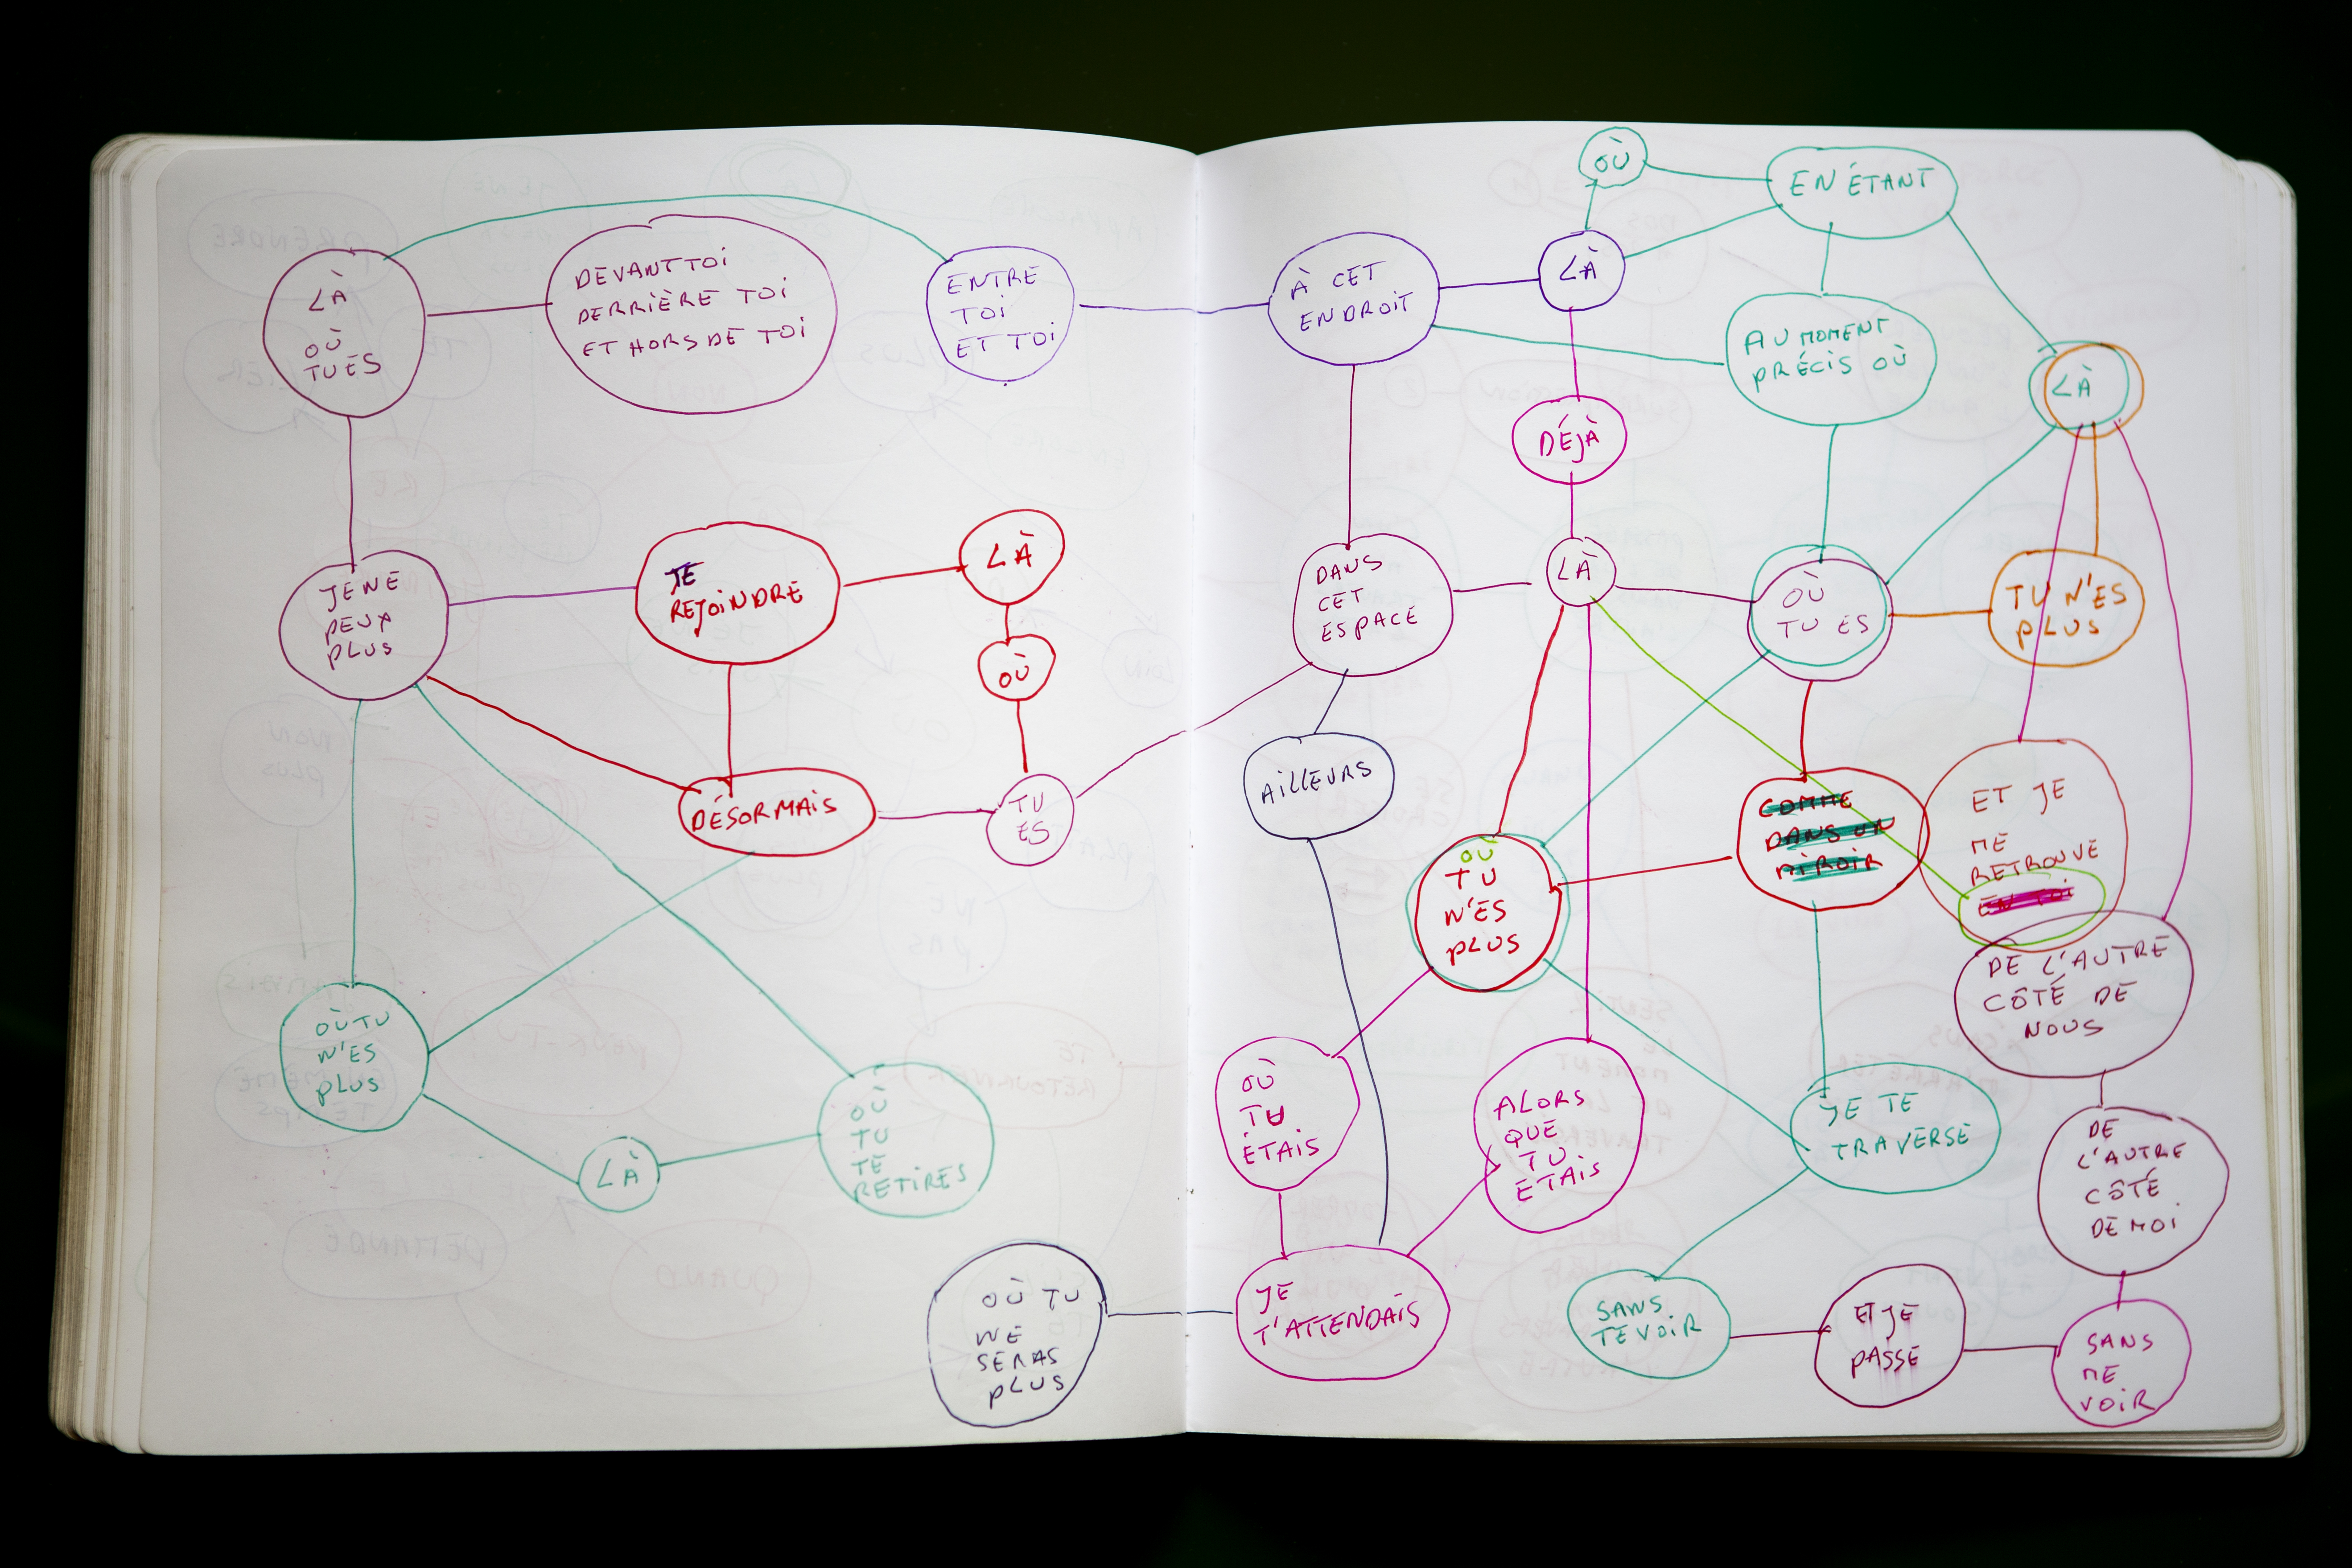 LÀ
OÙ
TU ES
DEVANT TOI
DERRIÈRE TOI
ET HORS DE TOI
ENTRE
TOI
ET TOI
JE NE
PEUX
PLUS
TE
REJOINDRE
LÀ
OÙ
DÉSORMAIS
TU
ES
OÙ TU
N'ES
PLUS
LÀ
OÙ
TU
TE
RETIRES
OÙ TU
NE
SERAS
PLUS
OÙ
EN ÉTANT
À CET
ENDROIT
LÀ
AU MOMENT
PRÉCIS OÙ
LÀ
DÉJÀ
DANS
CET
ESPACE
LÀ
OÙ
TU ES
TU N'ES
PLUS
AILLEURS
COMME
DANS UN
MIROIR
ET JE
ME
RETROUVE
EN TOI
OÙ
TU
N'ES
PLUS
DE L'AUTRE
CÔTÉ DE
NOUS
OÙ
TU
ÉTAIS
ALORS
QUE
TU
ÉTAIS
JE TE
TRAVERSE
DE
L'AUTRE
CÔTÉ
DE MOI
JE
T'ATTENDAIS
SANS
TE VOIR
ET JE
PASSE
SANS
ME
VOIR